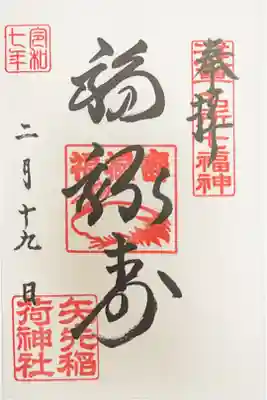 奉拝
浅草名所七福神
福禄寿
令和
七年
二月十九日
矢先稲
荷神社